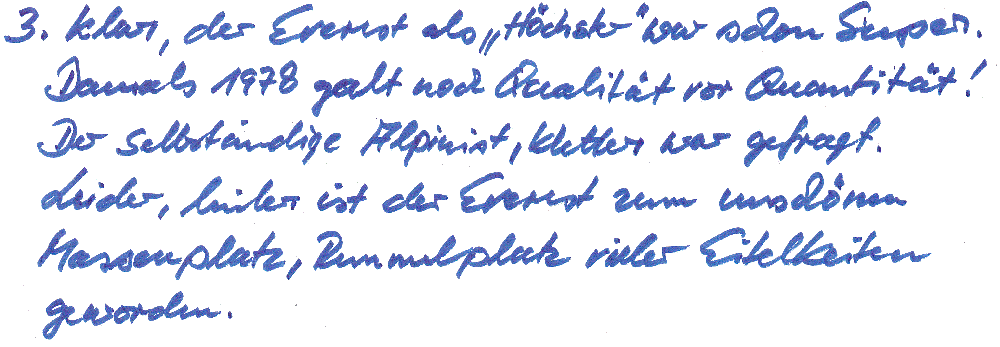 3. Klar, der Everest als „Höchster" war schon Super.
Damals 1978 galt noch Qualität vor Quantität!
Der selbständige Alpinist, Kletterer war gefragt.
Leider, leider ist der Everest zum unschönen
Massenplatz, Rummelplatz vieler Eitelkeiten
geworden.